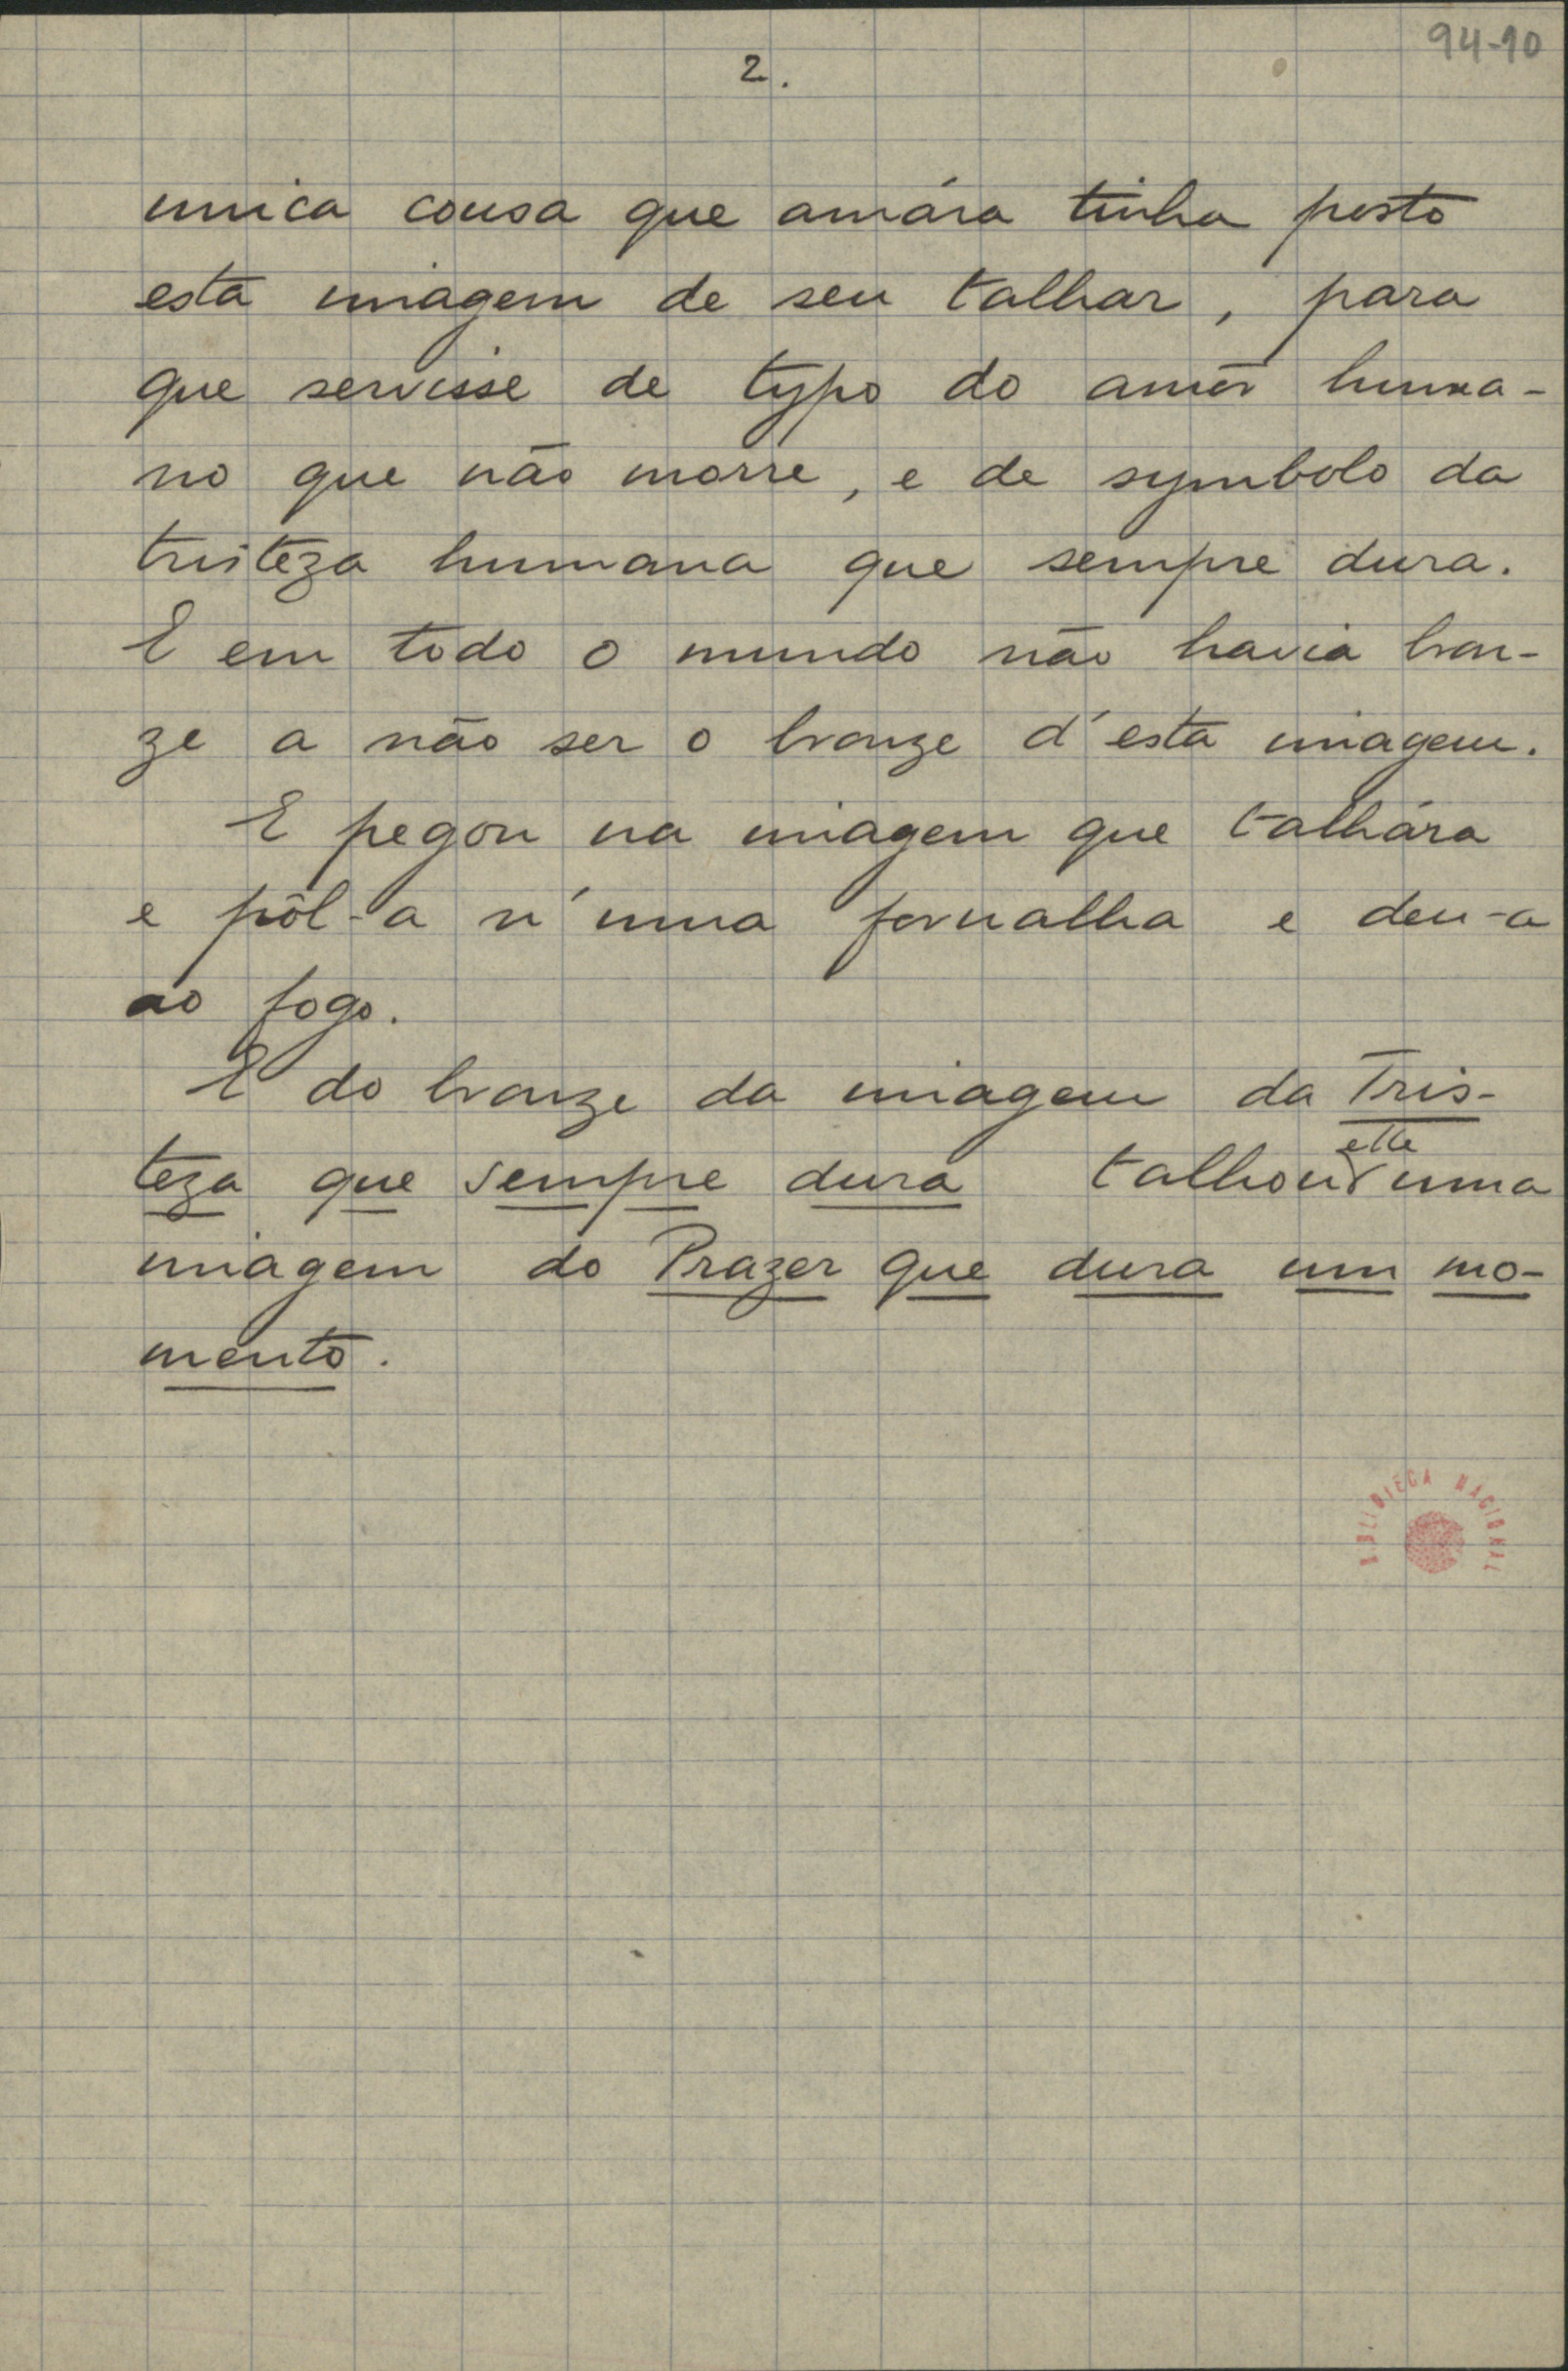 94-90
2.
unica cousa que amára tinha posto
esta imagem de seu talhar, para
que servisse de typo do amôr huma-
no que não morre, e de symbolo da
tristeza humana que sempre dura.
E em todo o mundo não havia bron-
ze a não ser o bronze d'esta imagem.
E pegou na imagem que talhára
e pôl-a n'uma fornalha e deu-a
ao fogo.
E do bronze da imagem da Tris-
elle
teza que sempre dura talhou uma
imagem do Prazer que dura um mo-
mento.
BIBLIOTECA NACIONAL